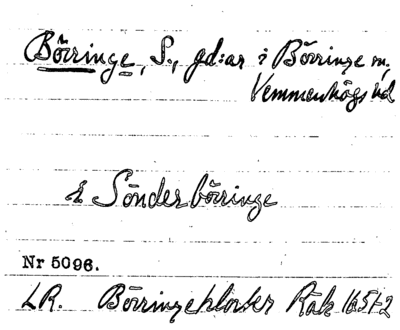 Börringe, S., gd:ar i Börringe sn,
Vemmenhögs hd
& Sönderbörringe
Nr 5096.
LR. Börringekloster Räk 1651-2